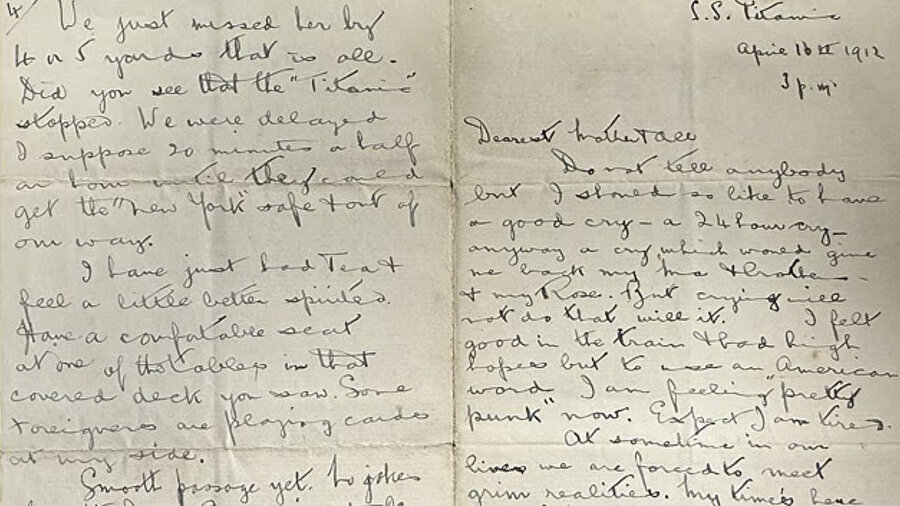 4/
We just missed her by
4 or 5 yards that is all.
Did you see that the "Titanic"
stopped. We were delayed
I suppose 20 minutes a half
an hour until they could
get the "New York" safe & out of
our way.
I have just had Tea &
feel a little better spirited.
Have a comfatable seat
at one of the tables in that
covered deck you saw. Some
foreigners are playing cards
at my side.
Smooth passage yet. No jokes
S.S. Titanic
April 10th 1912
3 p.m.
Dearest Mother & all
Do not tell anybody
but I should so like to have
a good cry - a 24 hour cry -
anyway a cry which would give
me back my Ma & brother
& my Rose. But crying will
not do that will it. I felt
good in the train & had high
hopes but to use an American
word I am feeling "pretty
punk" now. Expect I am tired.
At sometime in our
lives we are forced to meet
grim realities. My time's here